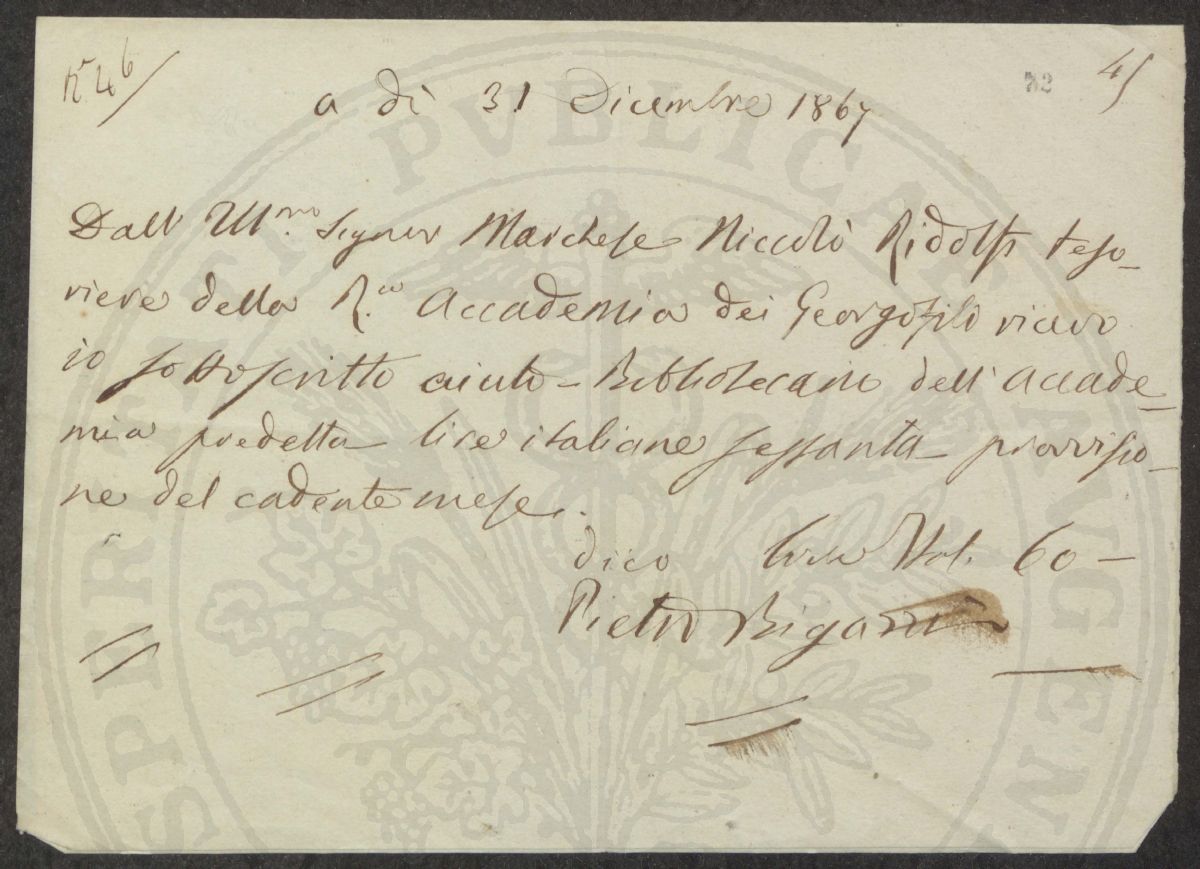 N° 46
32
45
a dì 31 Dicembre 1867
Dall' Ill.mo Signor Marchese Niccolò Ridolfi teso-
riere della R.a Accademia dei Georgofili ricevo
io sottoscritto aiuto-Bibliotecario dell' Accade-
mia predetta lire italiane sessanta provvisio-
ne del cadente mese.
dico Lire Ital. 60 —
Pietro Bigazzi
PROSPERITATI PVBLICAE AVGENDAE